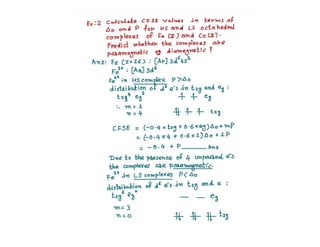 Ex:2 Calculate CFSE values in terms of
Δo and P for HS and LS octahedral
complexes of Fe(II) and Co(II).
Predict whether the complexes are
paramagnetic or diamagnetic?
Ans: Fe (Z=26) : [Ar] 3d⁶4s²
Fe²⁺ : [Ar] 3d⁶
Fe²⁺ in HS complex P>Δo
distribution of d⁶ e's in t2g and eg :
t2g⁴ eg²
∴ m = 1
n = 4
t2g
CFSE = (-0.4 × t2g + 0.6 × eg) Δo + mP
= (-0.4 × 4 + 0.6 × 2) Δo + 1P
= -0.4 + P ____ Ans
Due to the presence of 4 unpaired e's
the complexes are paramagnetic.
Fe²⁺ in LS complexes P<Δo
distribution of d⁶ e's in t2g and e :
t2g⁶ eg⁰ eg
m = 3
n = 0 t2g